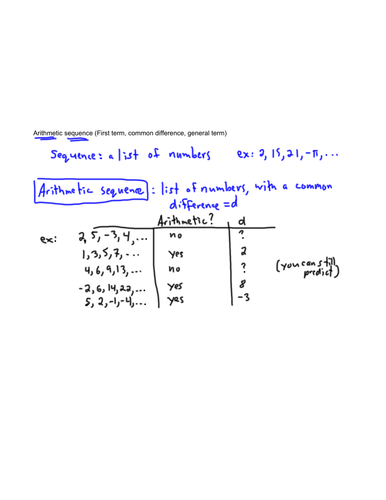 Arithmetic sequence (First term, common difference, general term)
Sequence: a list of numbers ex: 2, 15, 21, -π, ...
Arithmetic sequence: list of numbers, with a common
difference = d
Arithmetic? d
ex: 2, 5, -3, 4, ... no ?
1, 3, 5, 7, ... yes 2
4, 6, 9, 13, ... no ? (you can still
predict)
-2, 6, 14, 22, ... yes 8
5, 2, -1, -4, ... yes -3